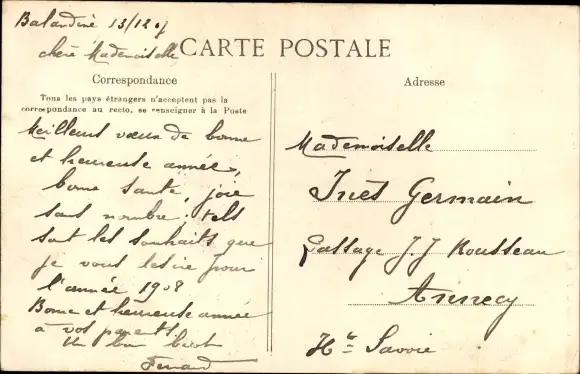 Balandine 13/12 07
chère Mademoiselle,
CARTE POSTALE
Correspondance
Tous les pays étrangers n'acceptent pas la
correspondance au recto, se renseigner à la Poste
Meilleurs vœux de bonne
et heureuse année,
bonne santé, joie
sans nombre. tels
sont les souhaits que
je vous pour
l'année 1908
Bonne et heureuse année
à vos parents.
Un bon
Fernand
Adresse
Mademoiselle
Inès Germain
Passage J.J Rousseau
Annecy
Hte Savoie